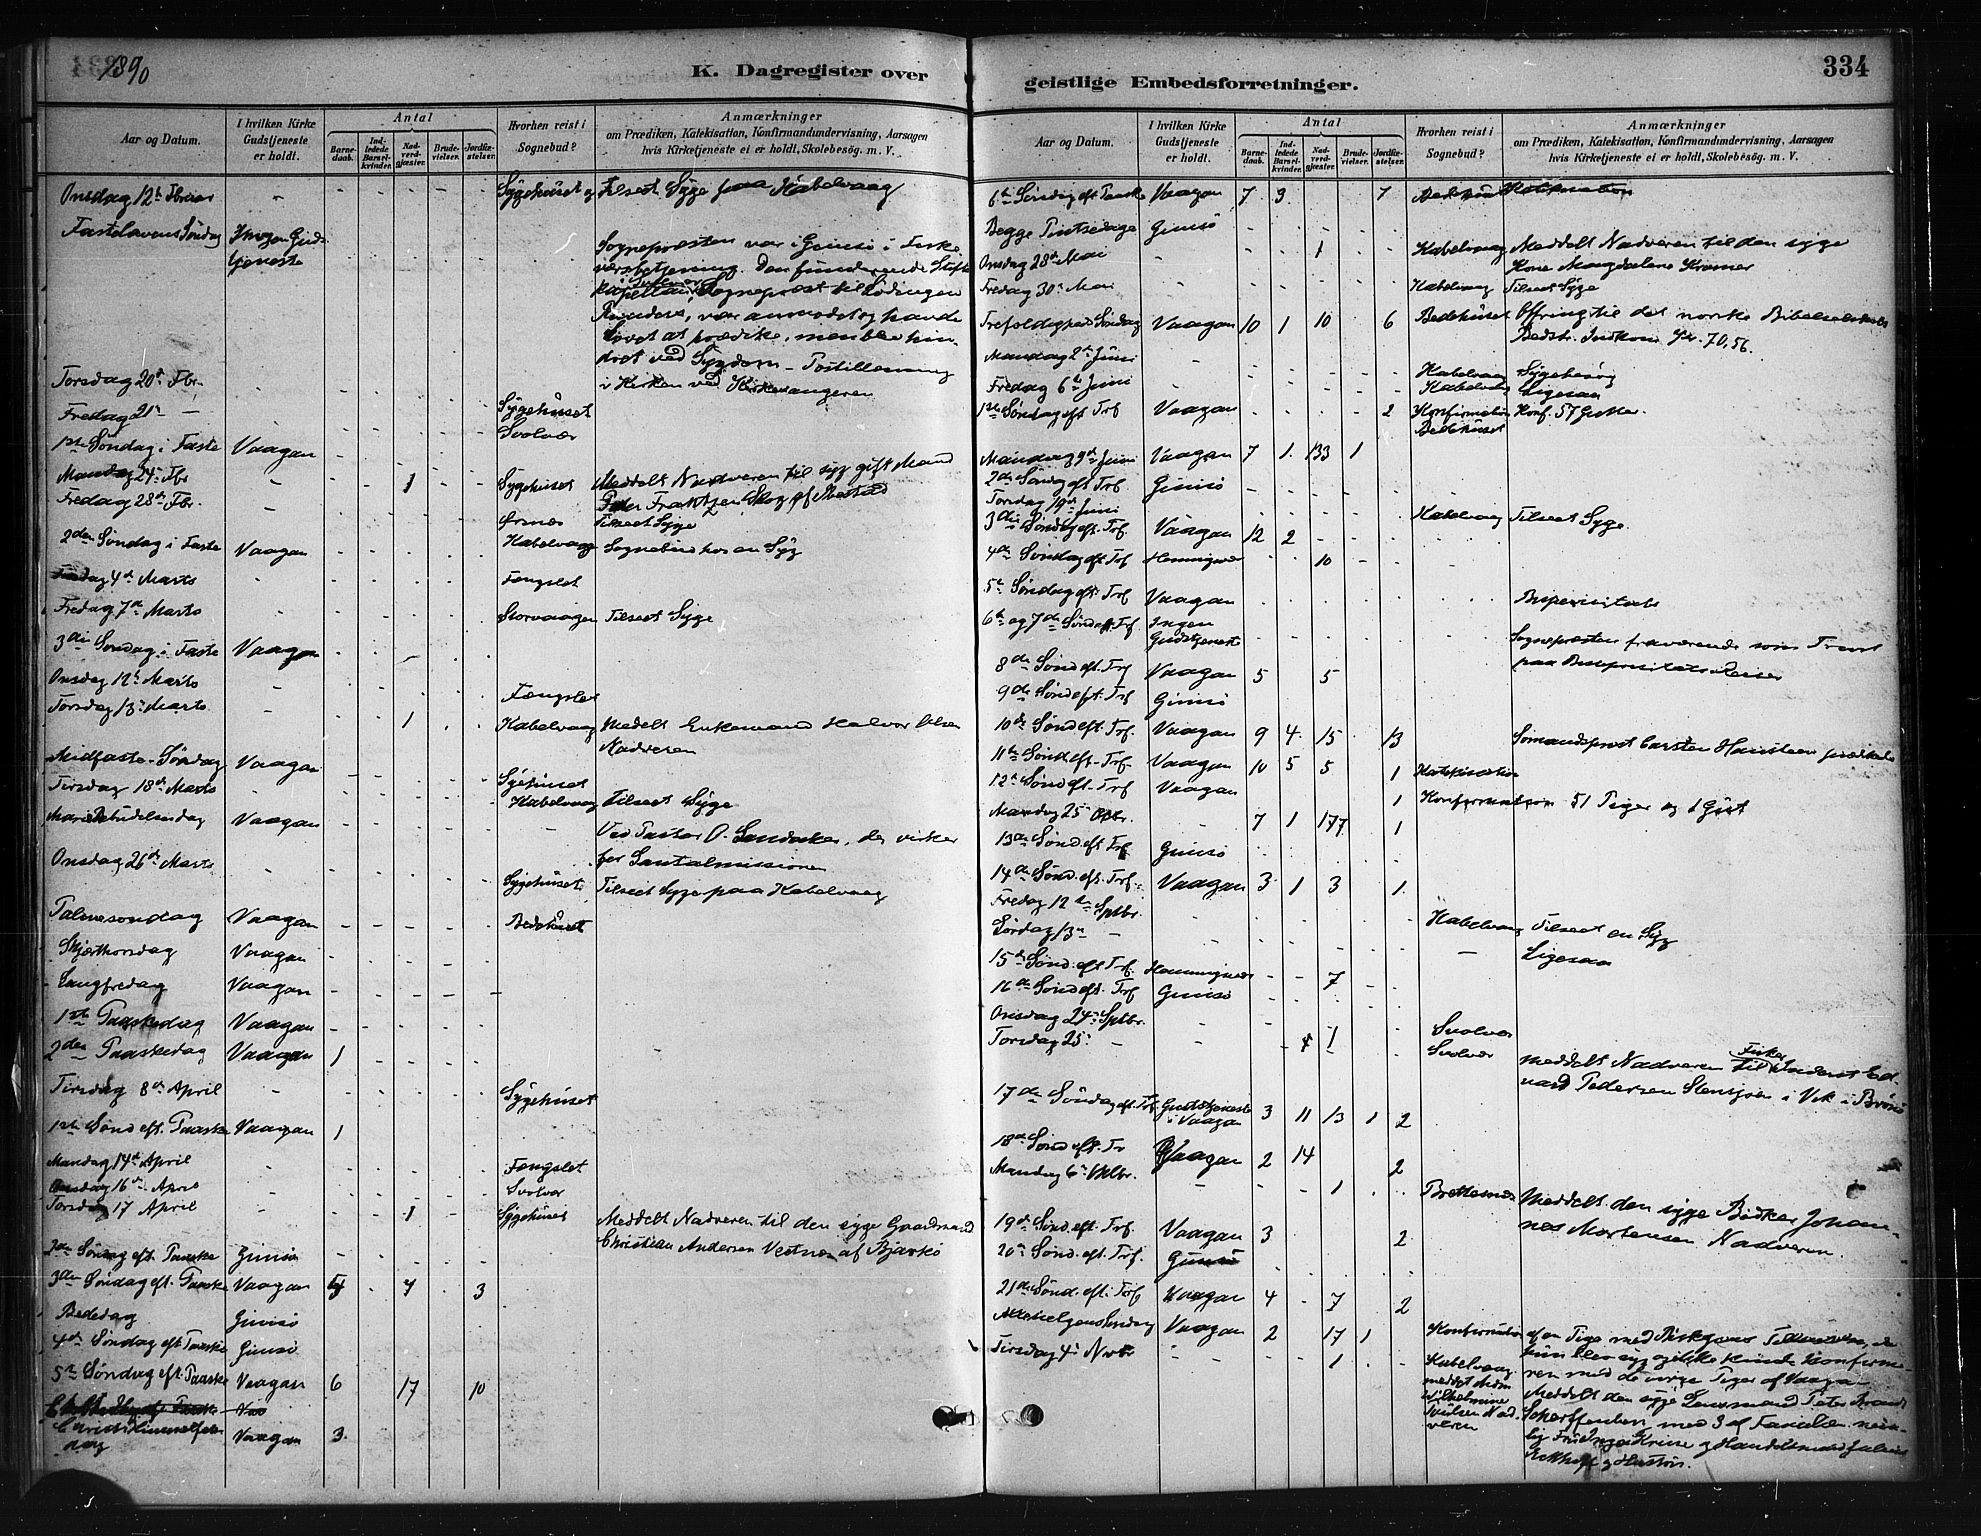 1890
K. Dagregister over
Aar og Datum.
I hvilken Kirke Gudstjeneste er holdt.
Antal
Barnedaab.
Indledede Barselkvinder.
Nadverdgjæster.
Brudevielser.
Jordfæstelser.
Hvorhen reist i Sognebud?
Anmærkninger
om Prædiken, Katekisation, Konfirmandundervisning, Aarsagen
hvis Kirketjeneste ei er holdt, Skolebesög. m. V.
Onsdag 12te Sygehuset og Tilseet Syge paa Kabelvaag
Fastelavens Søndag Ingen Guds
tjeneste
Sognepræsten var i Gimsö i Fiske
værsbetjening. Den fungerende Stifts
kapellan, Sognepræst til Lödingen
, var anmodet og havde
lovet at prædike, men blev hin
dret ved Sygdom - Postillæsning
i Kirken ved Kirkesangeren
Torsdag 20de Fbr.
Fredag 21de — Sygehuset
Svolvær
1ste Søndag i Faste Vaagan
Mandag 24de Fbr. 1 Sygehuset Meddelt Nadveren til syg gift Mand
Fredag 28de Fbr.
Ørsnes Tilseet Syge
2den Søndag i Faste Vaagan Kabelvaag Sognebud hos en Syg
4de Marts Fængslet
Fredag 7de Marts Storvaagen Tilseet Syge
3die Søndag i Faste Vaagan
Onsdag 12te Marts Fængslet
Torsdag 13de Marts 1 Kabelvaag Meddelt Enkemand Halvor Olsen
Nadveren
Midfaste-Søndag Vaagan
Tirsdag 18de Marts Sygehuset
Kabelvaag Tilseet Syge
Mariæ Bebudelsesdag Vaagan Ved Pastor O. , der virker
for Santalmissionen
Onsdag 26de Marts Sygehuset Tilseet Syge paa Kabelvaag
Palmesøndag Vaagan Bedehuset
Skjærthorsdag Vaagan
Langfredag Vaagan
1ste Paaskedag Vaagan
2den Paaskedag Vaagan 1
Tirsdag 8de April Sygehuset
1ste Sønd eft. Paaske Vaagan 1
Mandag 14de April Fængslet
Onsdag 16de April Svolvær
Torsdag 17 April 1 Sygehuset Meddelt Nadveren til den syge Gaardmand
Christian Andersen Vestnes af Bjarkö
2den Søndag eft. Paaske Gimsö
3die Søndag eft. Paaske Vaagan 4 7 3
Bededag Gimsö
4de Søndag eft Paaske Gimsö
5te Søndag eft. Paaske Vaagan 6 17 10
Christi Himmelfarts
dag Vaagan 3
geistlige Embedsforretninger.
334
Aar og Datum.
I hvilken Kirke Gudstjeneste er holdt.
Antal
Barnedaab.
Indledede Barselkvinder.
Nadverdgjæster.
Brudevielser.
Jordfæstelser.
Hvorhen reist i Sognebud?
Anmærkninger
om Prædiken, Katekisation, Konfirmandundervisning, Aarsagen
hvis Kirketjeneste ei er holdt, Skolebesög. m. V.
6te Søndag eft Paaske Vaagan 7 3 7 Bedehuset Katekisation
Begge Pintsedage Gimsö
Onsdag 28de Mai 1 Kabelvaag Meddelt Nadveren til den syge
Kone Magdalene Kramer
Fredag 30te Mai Kabelvaag Tilseet Syge
Trefoldigheds Søndag Vaagan 10 1 10 6 Bedehuset Offring til det norske Bibelselskab
Bedst. Indkom Kr. 70,56.
Mandag 2den Juni Kabelvaag Sygebesøg
Fredag 6te Juni Kabelvaag Ligesaa
1ste Søndag eft Trf Vaagan 2 Konfirmation Konf. 57 Gutter.
Bedehuset
Mandag 9de Juni Vaagan 7 1 133 1
2den Søndag eft Trf Gimsö
Torsdag 19de Juni Kabelvaag Tilseet Syge.
3die Søndag eft. Trf Vaagan 12 2
4de Søndag eft Trf Henningsvær 10
5te Søndag eft. Trf Vaagan
6te og 7de Sønd eft Trf Ingen
Gudstjeneste Sognepræsten fraværende som
paa
8de Sønd eft. Trf Vaagan 5 5
9de Sønd eft. Trf Gimsö
10de Sønd eft. Trf. Vaagan 9 4 15 13 Sömandsprest Carsten Hansteen prædikede
11te Sønd. eft. Trf. Vaagan 10 5 5 1 Katekisation
12te Sønd eft. Trf Vaagan 1 Konfirmation 51 Piger og 1 Gut
Mandag 25 7 1 177 1
13de Sønd eft Trf Gimsö
14de Sønd. eft. Trf. Vaagan 3 1 3 1
Fredag 12te Sptbr. Kabelvaag Tilseet en Syg
Lørdag 13de — — Ligesaa
15de Sønd. eft Trf. Henningsvær 7
16de Sønd eft. Trf Gimsö
Onsdag 24de Sptbr. Svolvær
Torsdag 25. — 1 Svolvær Meddelt Nadveren til Fisker Ed
vard Pedersen i Vik i Brönö
17de Søndag eft. Trf Gudstjeneste
i Vaagan 3 11 13 1 2
18de Sønd eft. Tr Vaagan 2 14 2
Mandag 6te Oktbr. 1 Brettesnes Meddelt den syge Bödker Johan
nes Mortensen Nadveren.
19de Sønd. eft. Trf. Vaagan 3 2
20de Sønd. eft. Trf. Gimsö
21de Sønd. eft. Trf Vaagan 4 7 2
Allehelgens Søndag Vaagan 2 17 1 Konfirmation af en Pige med Biskopens Tilladelse, da
hun blev syg og ikke kunde konfirme
res med de øvrige Piger af Vaagan
Tirsdag 4de Novbr 1 Kabelvaag
Meddelt den syge Lensmand Peter
Scharffenberg med 3 af Familien